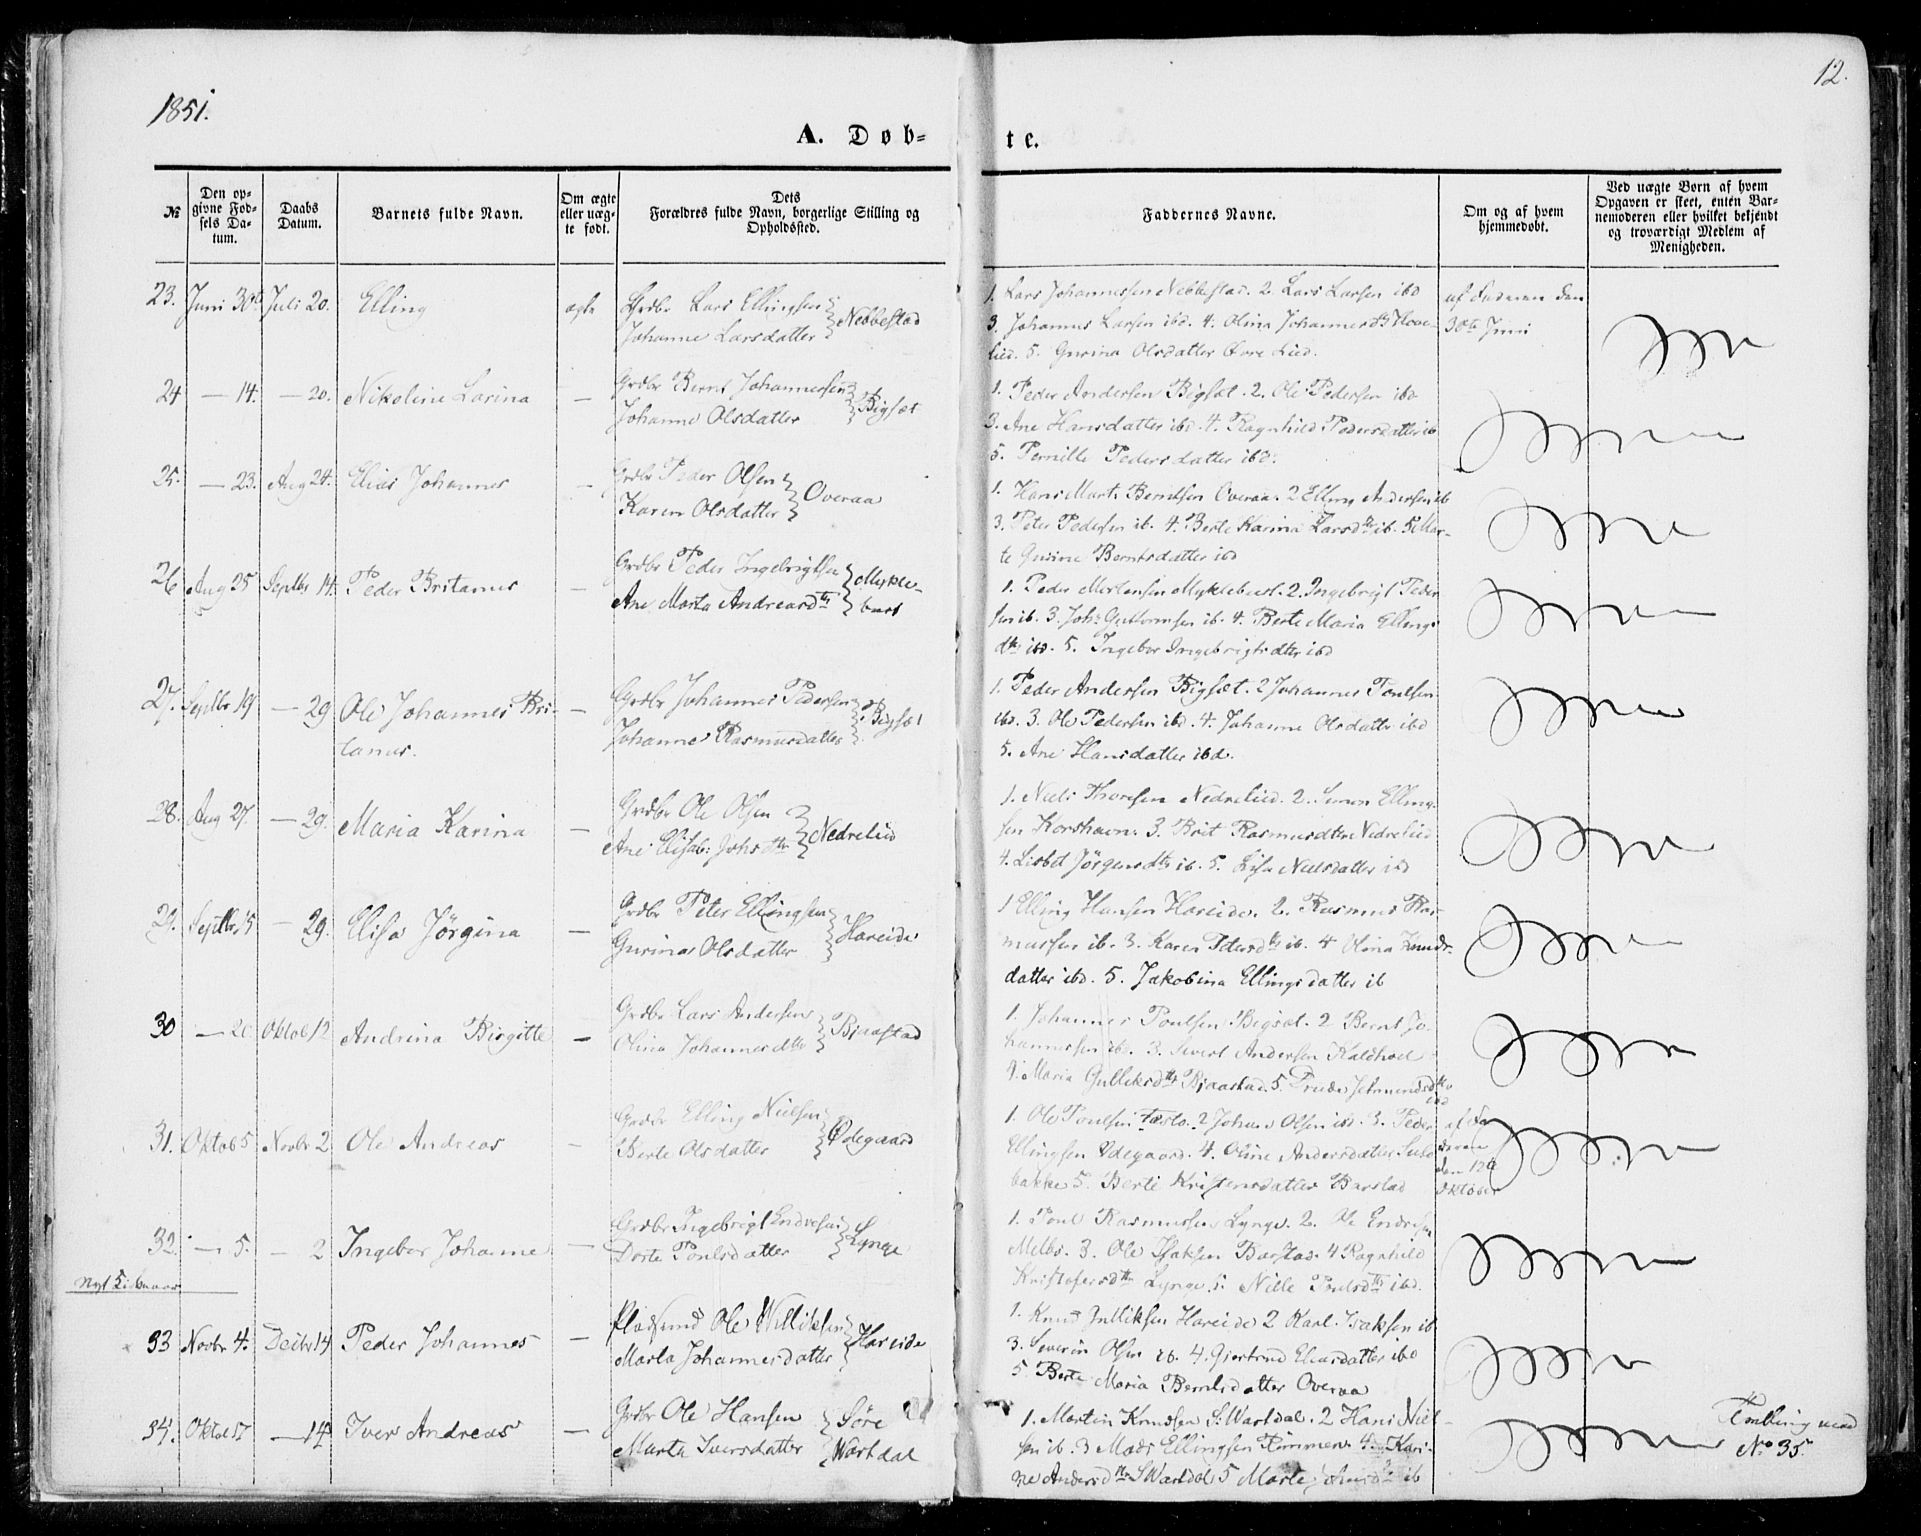 1851.
12.
A. Døb=
te.
№
Den op=
givne Fød=
sels Da=
tum.
Daabs
Datum.
Barnets fulde Navn.
Om ægte
eller uæg=
te født.
Dets
Forældres fulde Navn, borgerlige Stilling og
Opholdssted.
Faddernes Navne.
Om og af hvem
hjemmedøbt.
Ved uægte Børn af hvem
Opgaven er skeet, enten Bar=
nemoderen eller hvilket bekjendt
og troværdigt Medlem af
Menigheden.
23. Juni 30te Juli 20. Elling ægte Grdbr Lars Ellingsen
Johanne Larsdatter Nebbestad
1. Lars Johannessen Nebbestad. 2. Lars Larsen ibd
3. Johannes Larsen ibd. 4. Olina Johannesdtr Hove-
lied. 5. Gurina Olsdatter Øvre Lied.
af Faderen den
30te Juni
24 — 14. — 20. Nikoline Larina — Grdbr Bernt Johannessen
Johanne Olsdatter Bigset
1. Peder Andersen Bigset. 2. Ole Pedersen ibd
3. Ane Hansdatter ibd. 4. Ragnhild Pedersdatter ib
5. Pernille Pedersdatter ibd.
25. — 23. Aug 24. Elias Johannes — Grdbr Peder Olsen
Karen Olsdatter Overaa
1. Hans Mart. Berntsen Overaa. 2 Elling Andersen ib
3. Peter Pedersen ib. 4. Berte Karina Larsdtr ib. 5 Mar-
te Gurine Berntsdatter ibd
26 Aug 25 Septbr 14. Peder Britanus — Grdbr Peder Ingebrigtsen
Ane Marta Andreasdtr Mykle-
bust
1. Peder Mortensen Myklebust. 2. Ingebrigt Peder-
sen ib. 3. Johs Guttormsen ib. 4. Berte Maria Ellings-
dtr ibd. 5. Ingebor Ingebrigtsdtter ibd
27. Septbr 19 — 29 Ole Johannes Bri- — Grdbr Johannes Pedersen
tanus.
Johanne Rasmusdatter Bigset
1. Peder Andersen Bigset. 2 Johannes Poulsen
ibd. 3. Ole Pedersen ibd. 4. Johanne Olsdatter ibd
5. Ane Hansdatter ibd.
28. Aug 27. — 29. Maria Karina — Grdbr Ole Olsen
Ane Elisab: Johsdtr Nedrelid
1. Niels Thoresen Nedrelied. 2. Simon Elling-
sen Korshavn. 3. Brit Rasmusdtr Nedrelied
4. Lisbet Jörgensdtr ib. 5. Lisa Nielsdatter ibd
29. Septbr 15 — 29. Elisa Jörgina — Grdbr Peter Ellingsen
Gurina Olsdatter Hareide
1 Elling Hansen Hareide. 2. Rasmus Ras-
mussen ib. 3. Karen Petersdtr ib. 4 Olina Knuds-
datter ibd. 5. Jakobina Ellingsdatter ib
30 Oktob 12 Andrina Birgitte — Grdbr Lars Andersen
Olina Johannesdtr Bjaastad
1. Johannes Poulsen Bigset. 2 Bernt Jo-
hannessen ib. 3. Sivert Andersen Kaldhol
4. Maria Gulliksdtr Bjaastad. 5.
31. Oktob 5 Novbr 2 Ole Andreas — Grdbr Elling Nielsen
Berte Olsdatter Ødegaard
1. Ole Poulsen 2 Johan Olsen ibd. 3. Peder
Ellingsen Ødegaard. 4. Oline Andersdatter
bakke 5. Berte Kristensdatter Barstad
af Fa-
deren
den 12te
Oktober
32. — 5. — 2 Ingebor Johanne — Grdbr Ingebrigt Endresen
Dorte Poulsdatter Lynge
1. Poul Rasmussen Lynge. 2. Ole Endresen
Melbø. 3. Ole Isaksen Barstad. 4 Ragnhild
Kristofersdtr Lynge. 5. Nille Poulsdtr ibd.
Nyt Kirkeaar
33 Novbr 4. Decbr 14 Peder Johannes — Pladsmd Ole Williksen
Marta Johannesdatter Hareide
1. Knud Gulliksen Hareide 2 Karl Isaksen ib
3. Severin Olsen ib. 4. Gjertrud Eliasdatter ibd
5. Berte Maria Berntsdatter Overaa
34. Oktob 17 — 14 Iver Andreas — Grdbr Ole Hansen
Marta Iversdatter Søre
Wartdal
1. Martin Knudsen S. Wartdal. 2 Hans Niel-
sen ib. 3 Mads Ellingsen Flimmen. 4. Kari-
ne Andersdtr S Wartdal 5 Marte ib
Tvilling med
No 35.